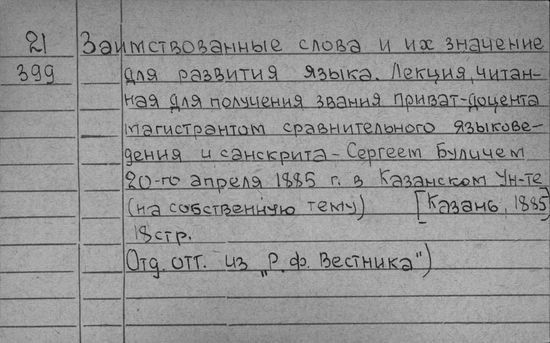 21 Заимствованные слова и их значение
399 для развития языка. Лекция, читан-
ная для получения звания приват-доцента
магистрантом сравнительного языкове-
дения и санскрита - Сергеем Буличем
20-го апреля 1885 г. в Казанском Ун-те
(на собственную тему) [Казань, 1885]
18 стр.
Отд. отт. из „Р. Ф. Вестника")